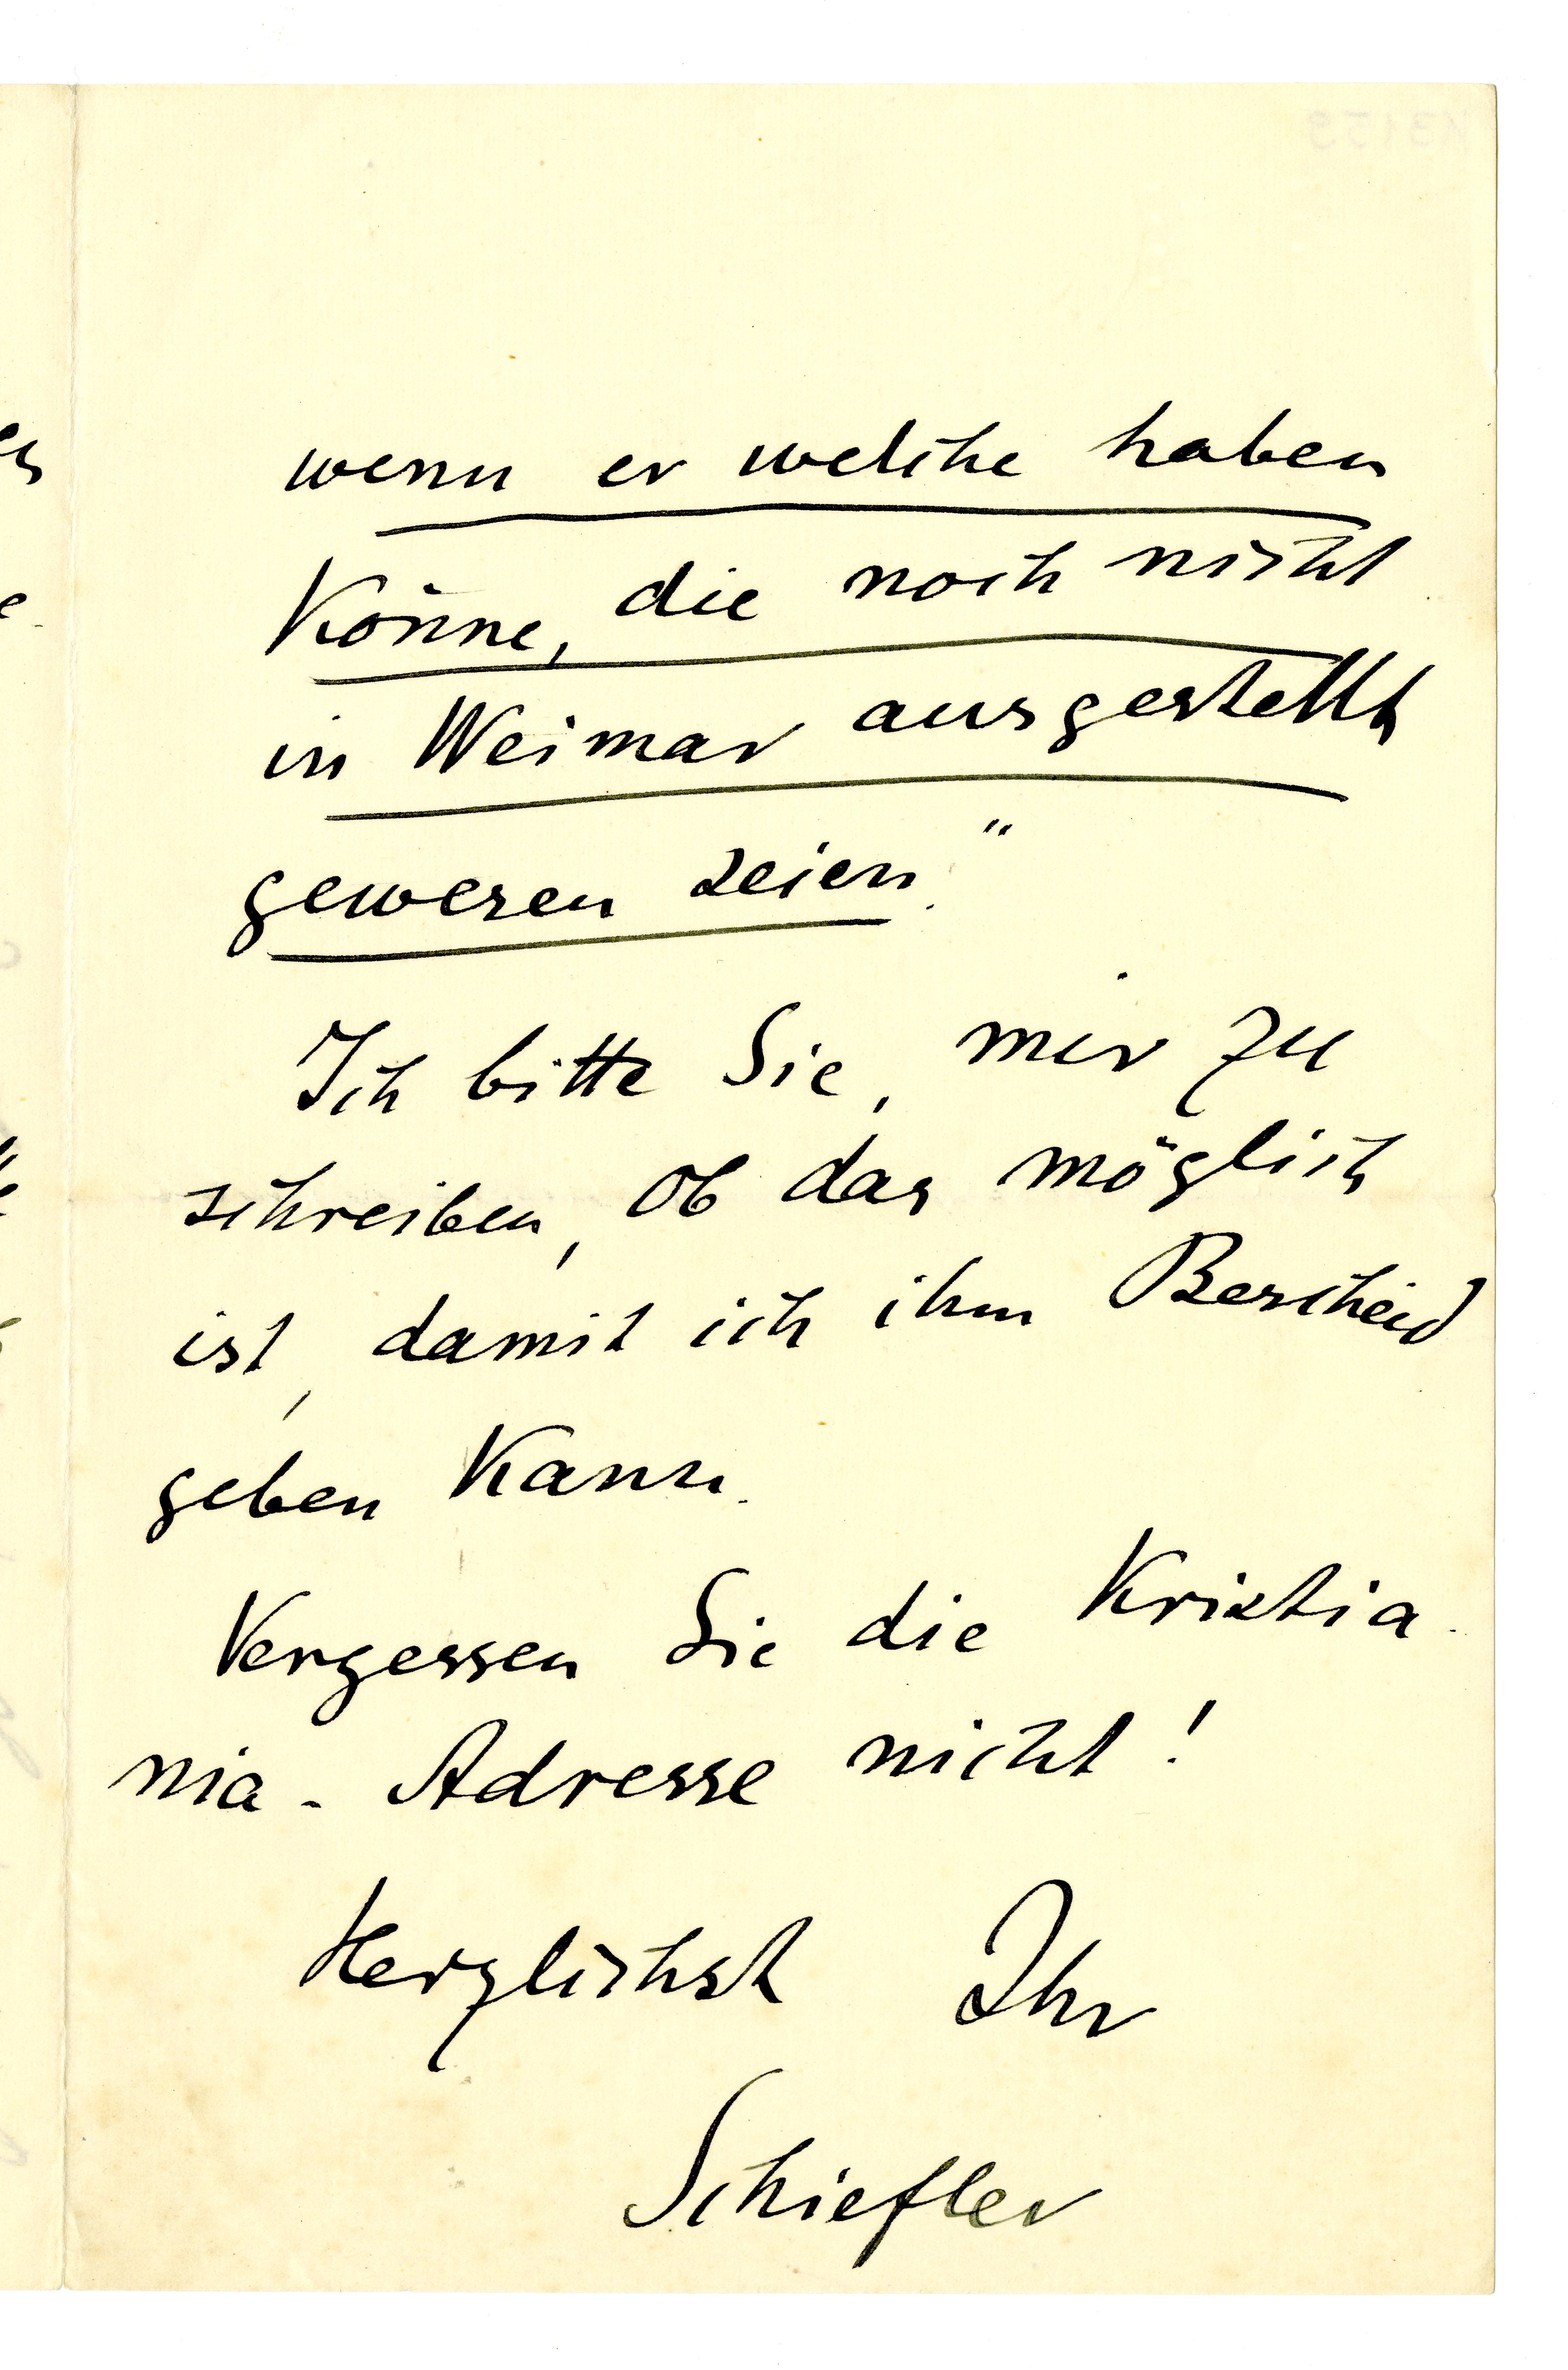 wenn er welche haben
könne, die noch nicht
in Weimar ausgestellt
gewesen seien."
Ich bitte Sie, mir zu
schreiben, ob das möglich
ist, damit ich ihm Bescheid
geben kann.
Vergessen Sie die Kristia-
nia-Adresse nicht!
Herzlichst Ihr
Schiefler